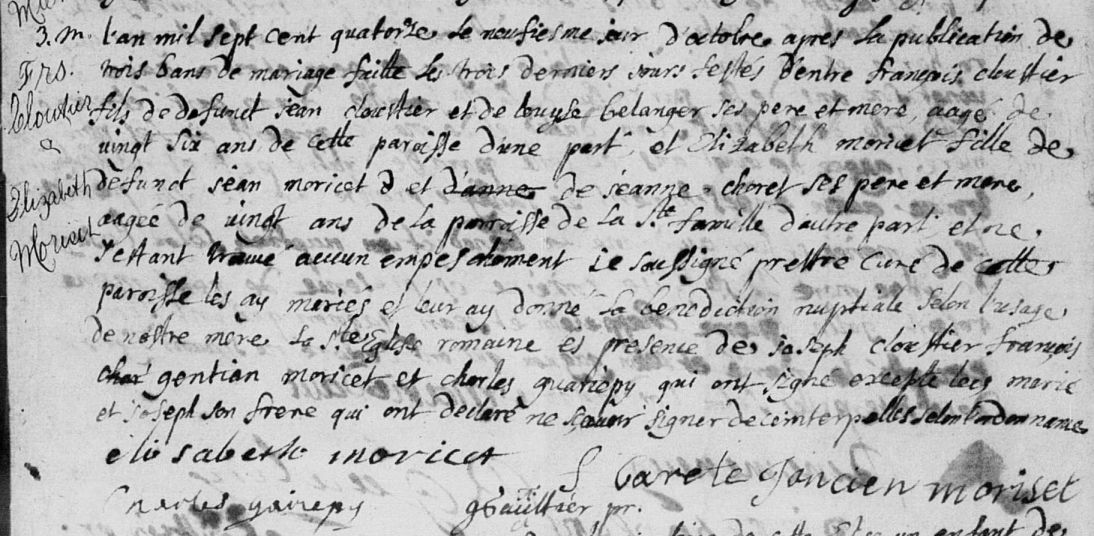 3. m. L'an mil sept cent quatorze le neufiesme jour d'octobre apres la publication de
Frs. trois bans de mariage faitte les trois derniers jours festés d'entre françois cloustier
Cloutier fils de defunct jean cloustier et de louyse belanger ses pere et mere, aagé de
& vingt six ans de cette paroisse d'une part, et Elizabeth moricet fille de
Elizabeth defunct jean moricet et d'anne de jeanne choret ses pere et mere,
Moricet aagée de vingt ans de la parroisse de la Ste famille d'autre part et ne
s'estant trouvé aucun empeschement je soussigné prestre curé de cette
paroisse les ay mariés et leur ay donné la benediction nuptiale selon l'usage
de nostre mere la Ste Eglise romaine és presence de joseph cloustier françois
gentian moricet et charles guariepy qui ont signé excepté le marié
et joseph son frere qui ont declaré ne sçavoir signer de ce interpellés selon l'ordonnance
elisabeth moricet
moriset
charles gairepy gGaultier pr.
enfant de